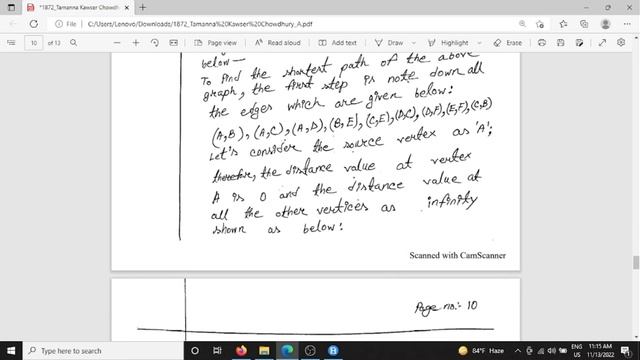 *1872_Tamanna Kawser Chowdh
File | C:/Users/Lenovo/Downloads/1872_Tamanna%20Kawser%20Chowdhury_A.pdf
10 of 13 Page view Read aloud Add text Draw Highlight Erase
below—
To find the shortest path of the above
graph, the first step is note down all
the edges which are given below:
(A,B), (A,C), (A,D), (B,E), (C,E), (D,C), (D,F), (E,F), (C,B)
Let's consider the source vertex as 'A';
therefore, the distance value at vertex
A is 0 and the distance value at
all the other vertices as infinity
shown as below:
Scanned with CamScanner
Page no:- 10
Type here to search
84°F Haze
ENG
US
11:15 AM
11/13/2022